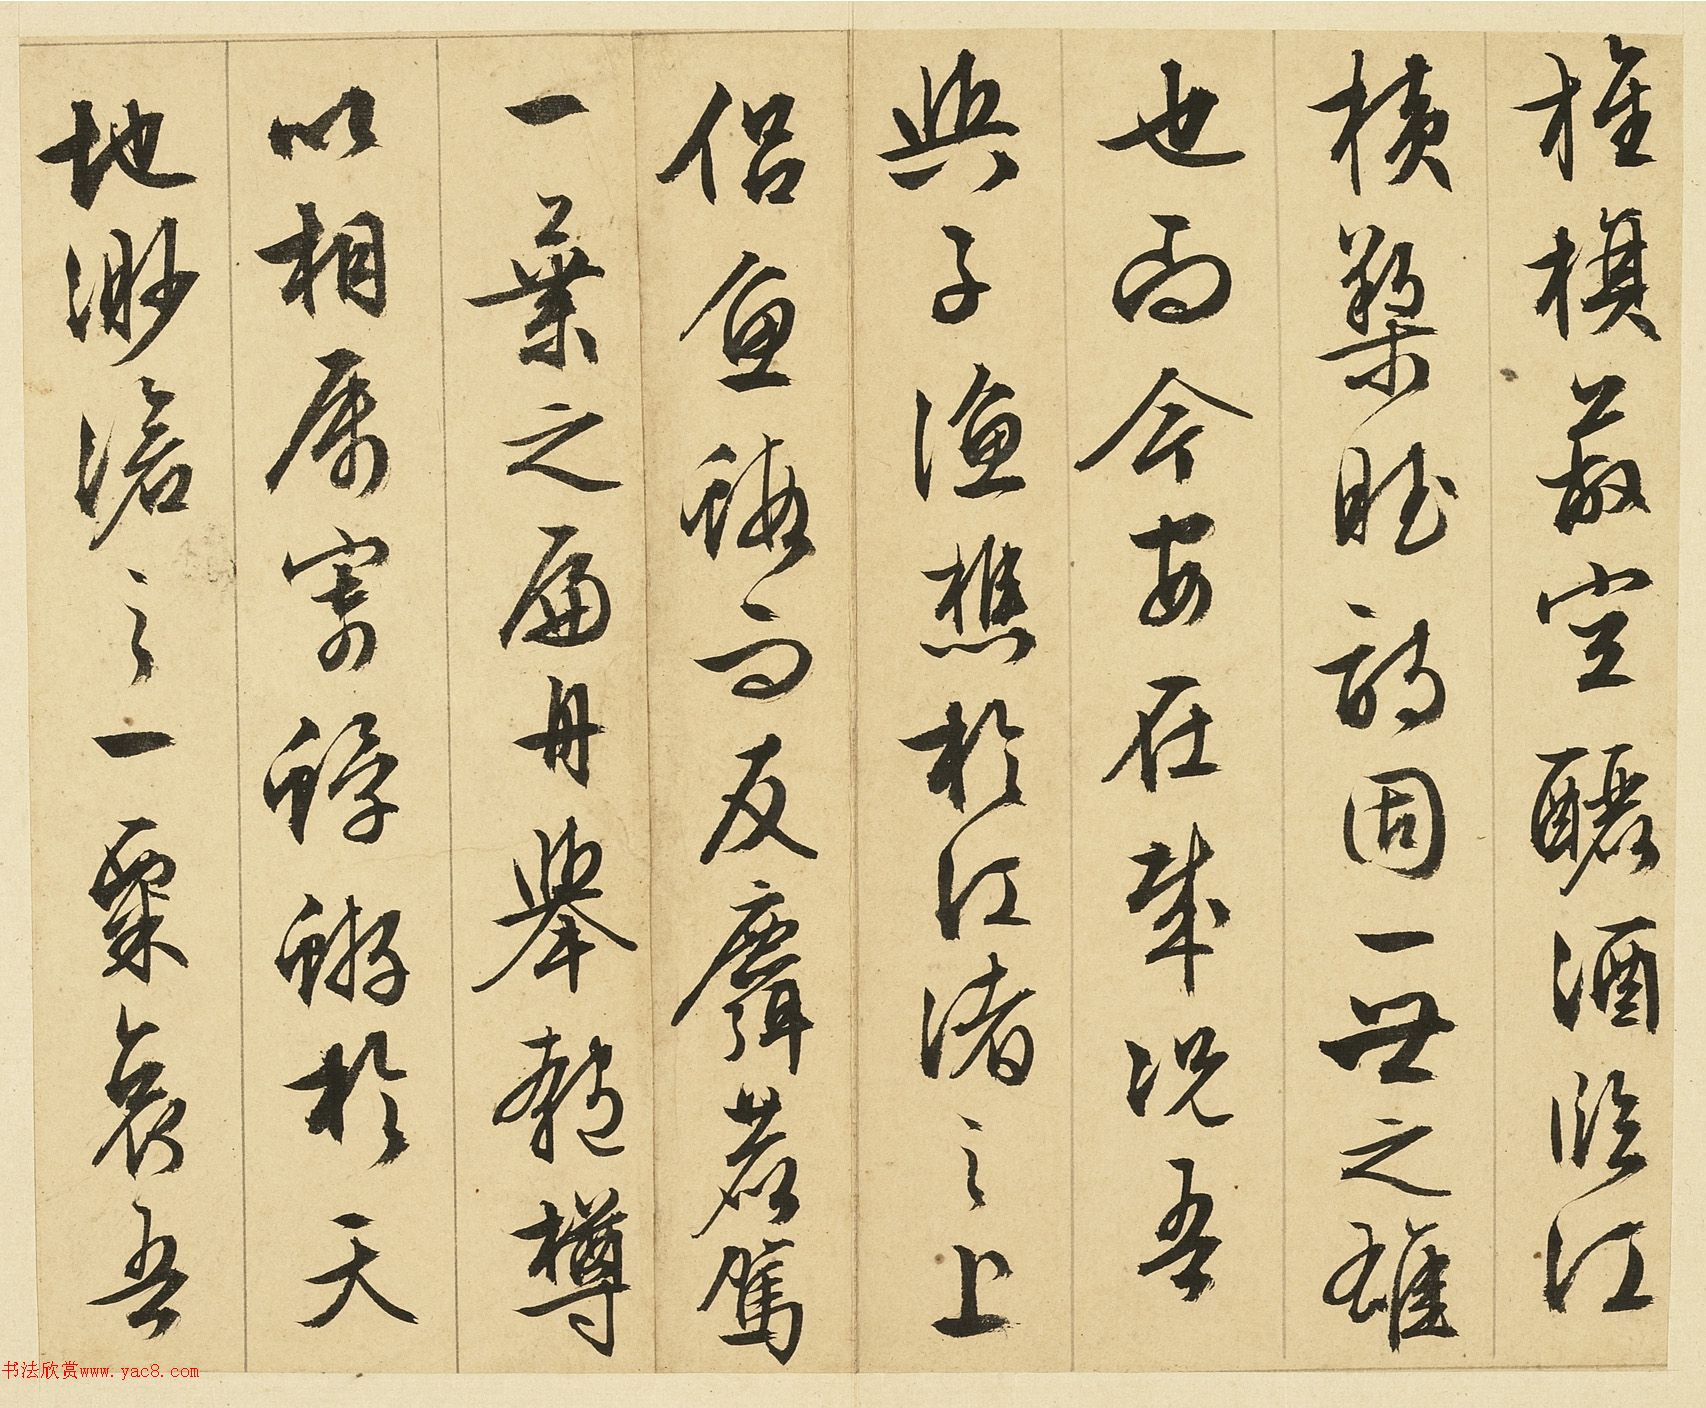 旌旗蔽空釃酒臨江
橫槊賦詩固一世之雄
也而今安在哉況吾
與子漁樵於江渚之上
侶魚蝦而友麛鹿駕
一葉之扁舟舉匏樽
以相属寄蜉蝣於天
地渺滄之一粟哀吾
书法欣赏www.yac8.com